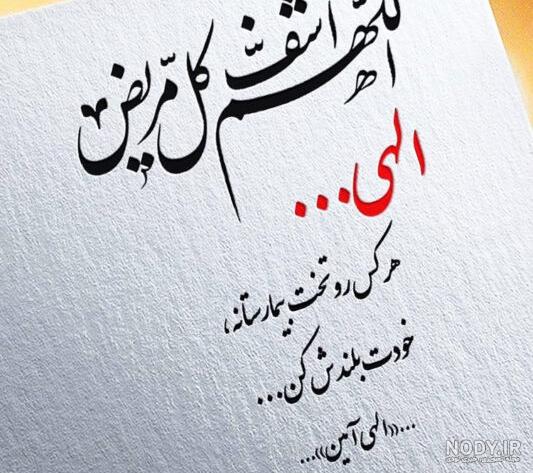 اللّهم اشف کل مریض
الهی...
هر کس رو تخت بیمارستانه،
خودت بلندش کن...
...((الهی آمین))...
NODY.IR